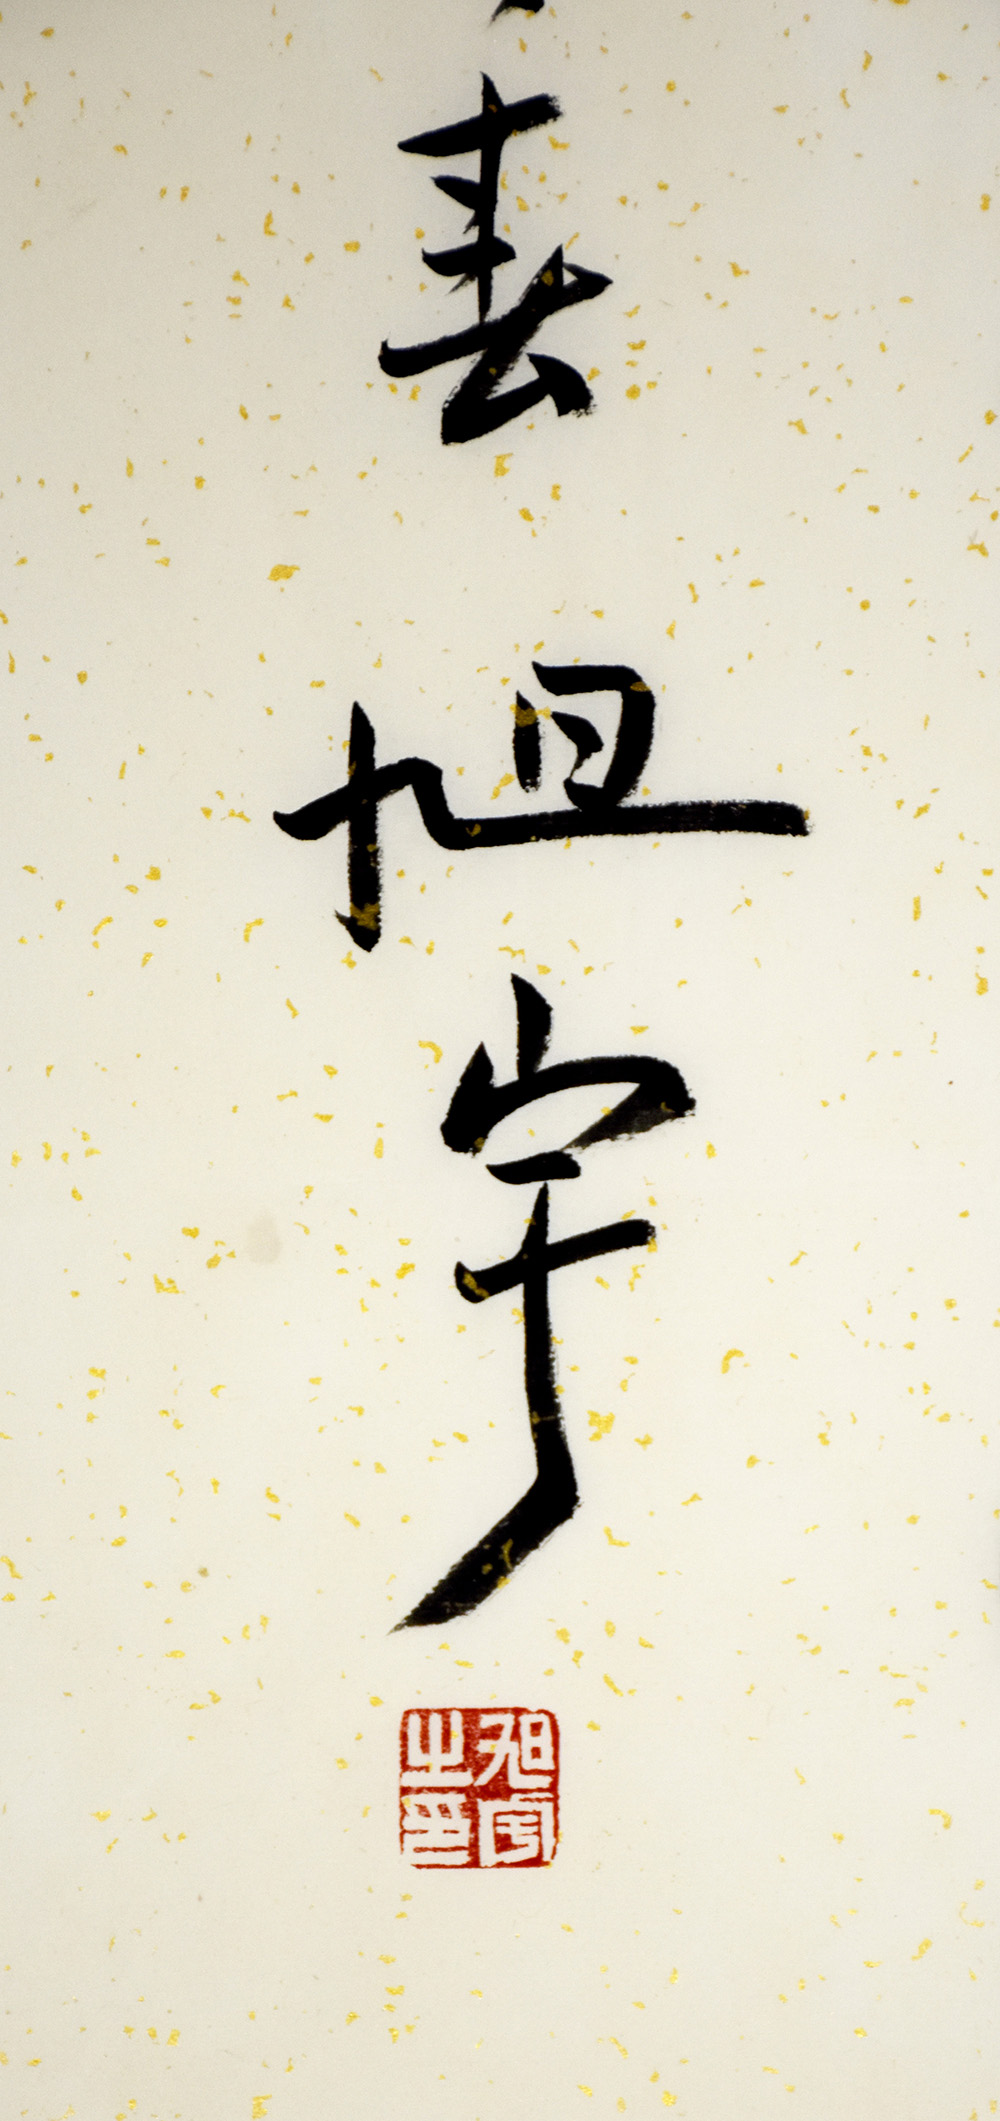 春旭宇
旭宇之印